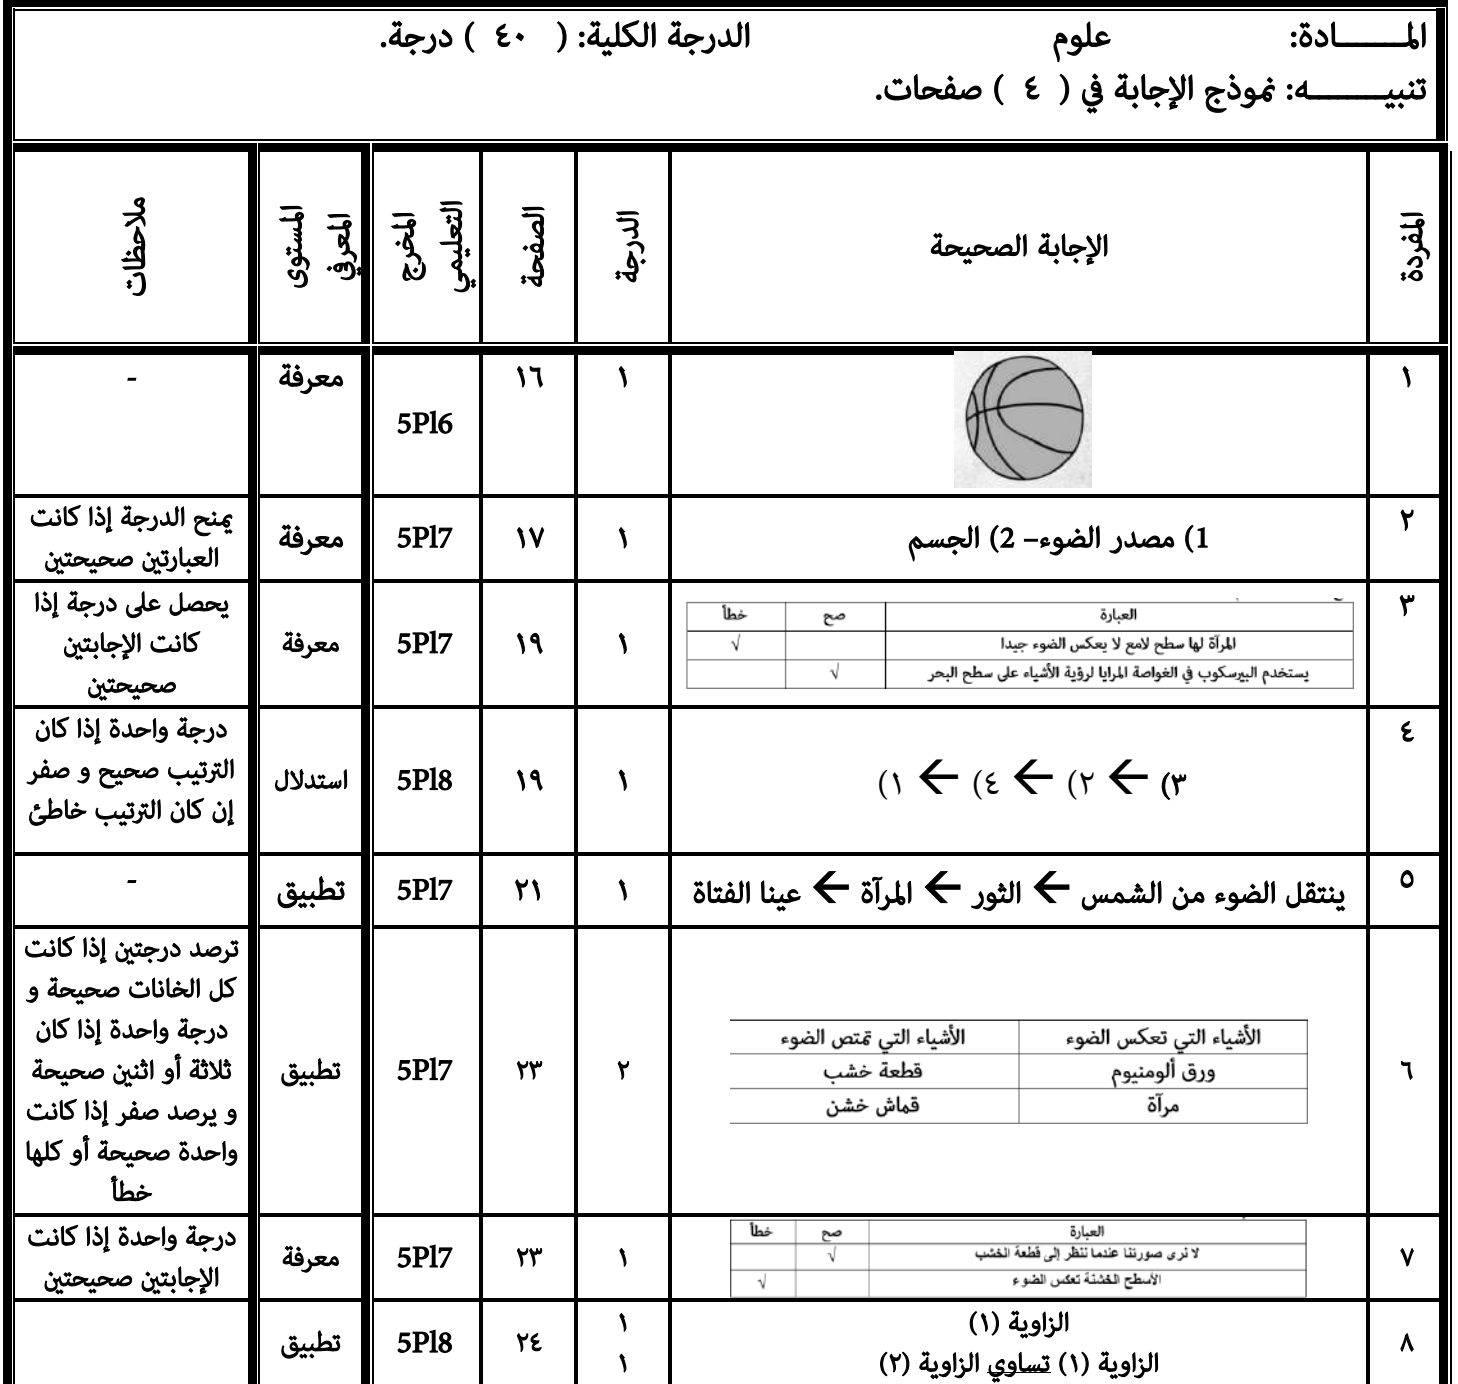 المـــــــادة: علوم الدرجة الكلية: ( ٤٠ ) درجة.
تنبيـــــــــه: نموذج الإجابة في ( ٤ ) صفحات.
المفردة
الإجابة الصحيحة
الدرجة
الصفحة
المخرج
التعليمي
المستوى
المعرفي
ملاحظات
١
١
١٦
5Pl6
معرفة
-
٢
1) مصدر الضوء– 2) الجسم
١
١٧
5Pl7
معرفة
يمنح الدرجة إذا كانت
العبارتين صحيحتين
٣
العبارة صح خطأ
المرآة لها سطح لامع لا يعكس الضوء جيدا √
يستخدم البيرسكوب في الغواصة المرايا لرؤية الأشياء على سطح البحر √
١
١٩
5Pl7
معرفة
يحصل على درجة إذا
كانت الإجابتين
صحيحتين
٤
٣) ← ٢) ← ٤) ← ١)
١
١٩
5Pl8
استدلال
درجة واحدة إذا كان
الترتيب صحيح و صفر
إن كان الترتيب خاطئ
٥
ينتقل الضوء من الشمس ← الثور ← المرآة ← عينا الفتاة
١
٢١
5Pl7
تطبيق
-
٦
الأشياء التي تعكس الضوء الأشياء التي تمتص الضوء
ورق ألومنيوم قطعة خشب
مرآة قماش خشن
٢
٢٣
5Pl7
تطبيق
ترصد درجتين إذا كانت
كل الخانات صحيحة و
درجة واحدة إذا كان
ثلاثة أو اثنين صحيحة
و يرصد صفر إذا كانت
واحدة صحيحة أو كلها
خطأ
٧
العبارة صح خطأ
لا نرى صورتنا عندما ننظر إلى قطعة الخشب √
الأسطح الخشنة تعكس الضوء √
١
٢٣
5Pl7
معرفة
درجة واحدة إذا كانت
الإجابتين صحيحتين
٨
الزاوية (١)
الزاوية (١) تساوي الزاوية (٢)
١
١
٢٤
5Pl8
تطبيق